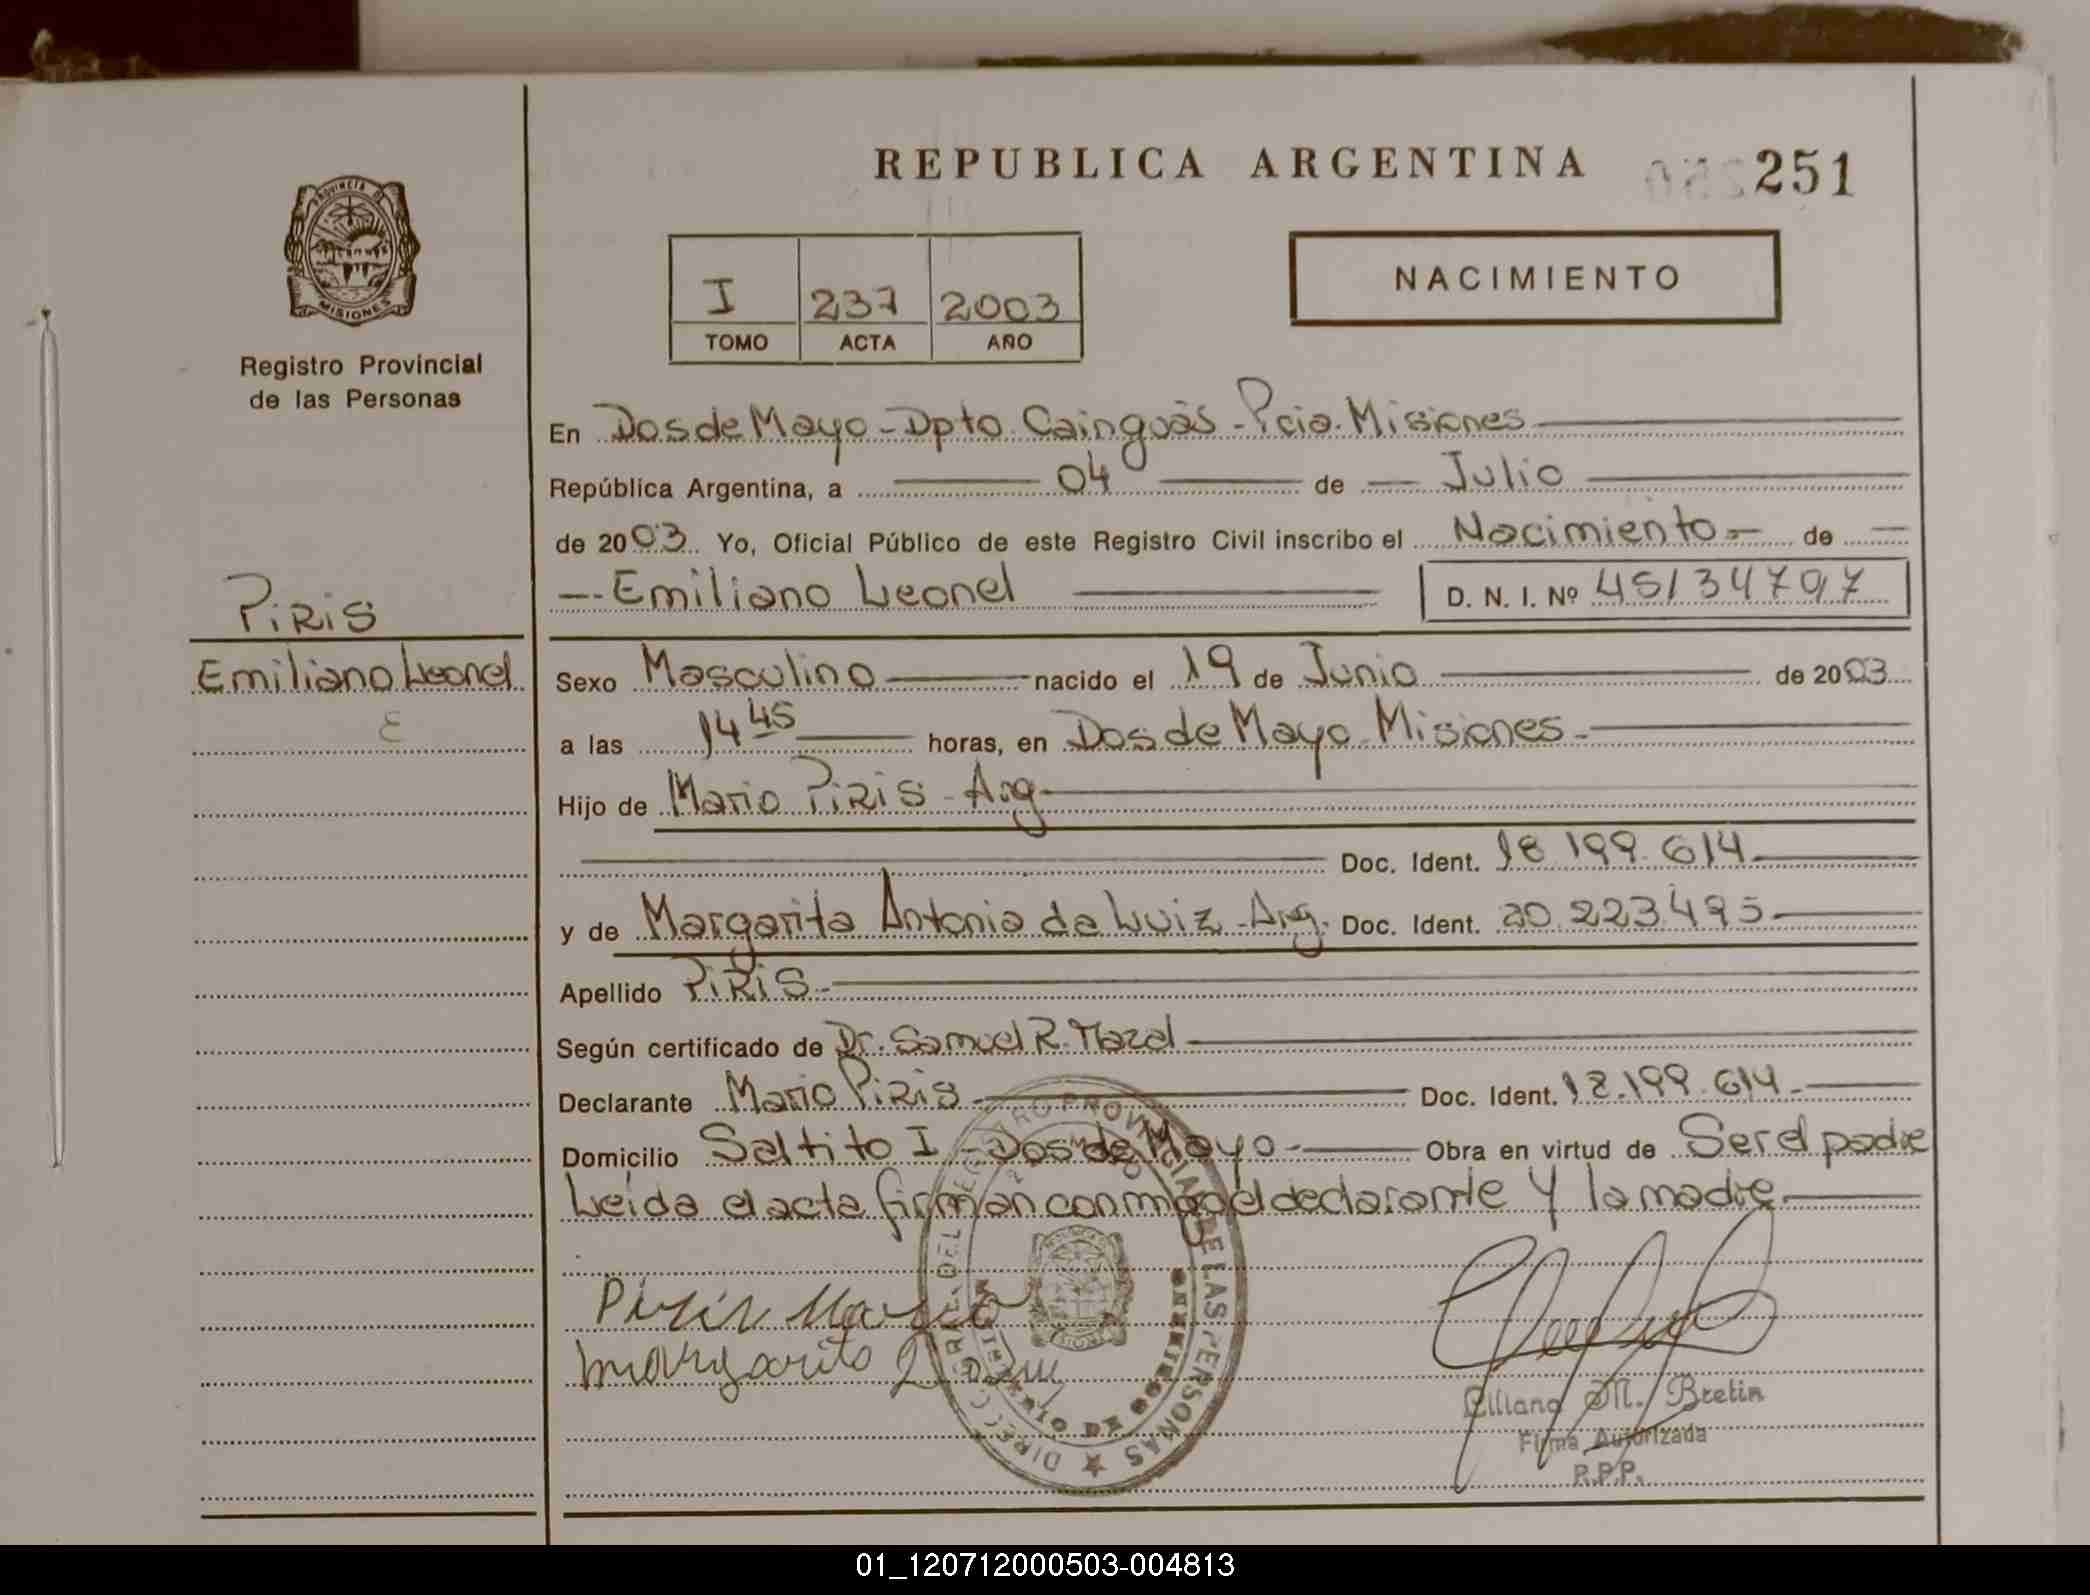 REPUBLICA ARGENTINA 251
PROVINCIA DE
MISIONES
Registro Provincial
de las Personas
I 237 2003
TOMO ACTA AÑO
NACIMIENTO
En Dos de Mayo - Dpto Cainguás - Pcia. Misiones
República Argentina, a 04 de Julio
de 2003 Yo, Oficial Público de este Registro Civil inscribo el Nacimiento - de
Emiliano Leonel D. N. I. Nº 45134797
PiRiS
Emiliano Leonel
Sexo Masculino nacido el 19 de Junio de 2003
a las 14 45 horas, en Dos de Mayo Misiones -
Hijo de Mario PiRiS - Arg
Doc. Ident. 18 199.614
y de Margarita Antonia da Luiz - Arg. Doc. Ident. 20.223.495
Apellido PiRiS -
Según certificado de Dr. Samuel R.
Declarante Mario PiRiS Doc. Ident. 18.199.614 -
Domicilio Saltito I - Dos de Mayo - Obra en virtud de Ser el padre
Leída el acta firman conmigo el declarante y la madre
Piris Mario
Margarita
DIRECC. GRAL. DEL REGISTRO PROVINCIAL DE LAS PERSONAS
M. Bretin
Firma Autorizada
R.P.P.
01_120712000503-004813